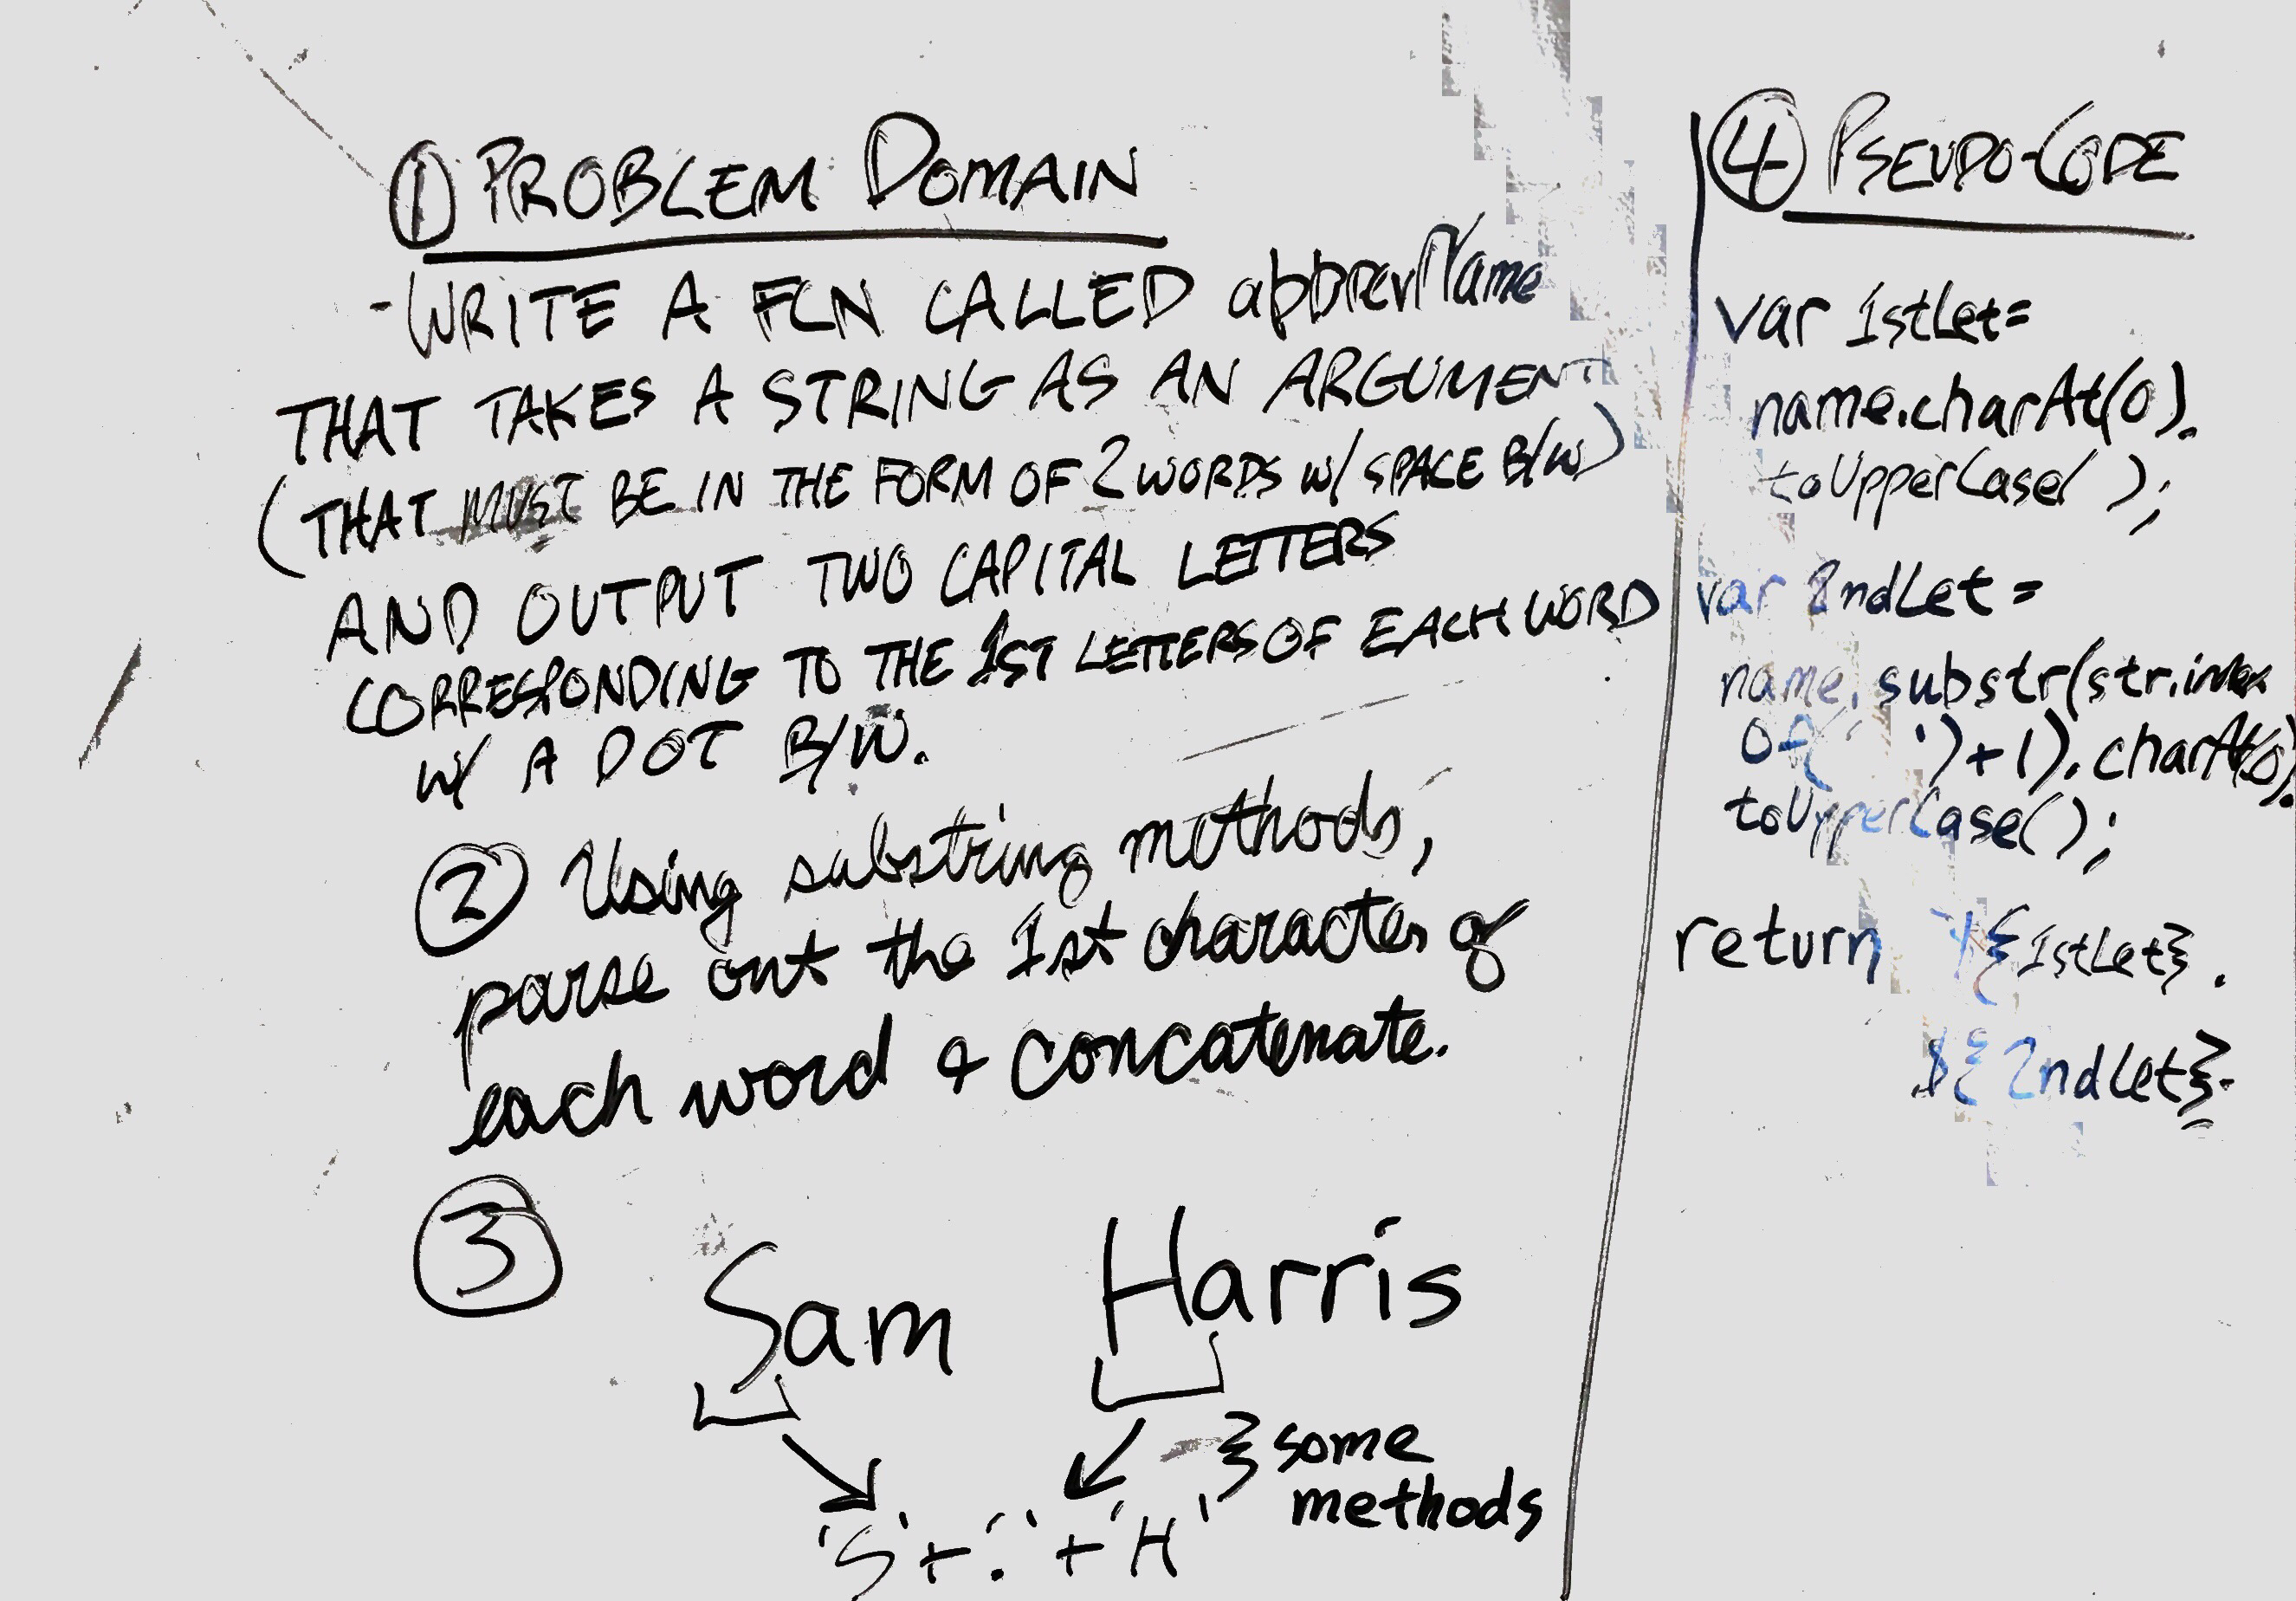 ① PROBLEM DOMAIN
-WRITE A FCN CALLED abbrevName
THAT TAKES A STRING AS AN ARGUMENT
(THAT MUST BE IN THE FORM OF 2 WORDS W/ SPACE B/W)
AND OUTPUT TWO CAPITAL LETTERS
CORRESPONDING TO THE 1ST LETTERS OF EACH WORD
W/ A DOT B/W.
② Using substring methods,
parse out the 1st character of
each word & concatenate.
③
Sam Harris
} some
methods
'S'+'.'+'H'
④ PSEUDO-CODE
var 1stLet=
name.charAt(0).
toUpperCase( );
var 2ndLet =
name.substr(str.index
Of(' ')+1).charAt(0).
toUpperCase();
return `${1stLet}.
${2ndLet}`